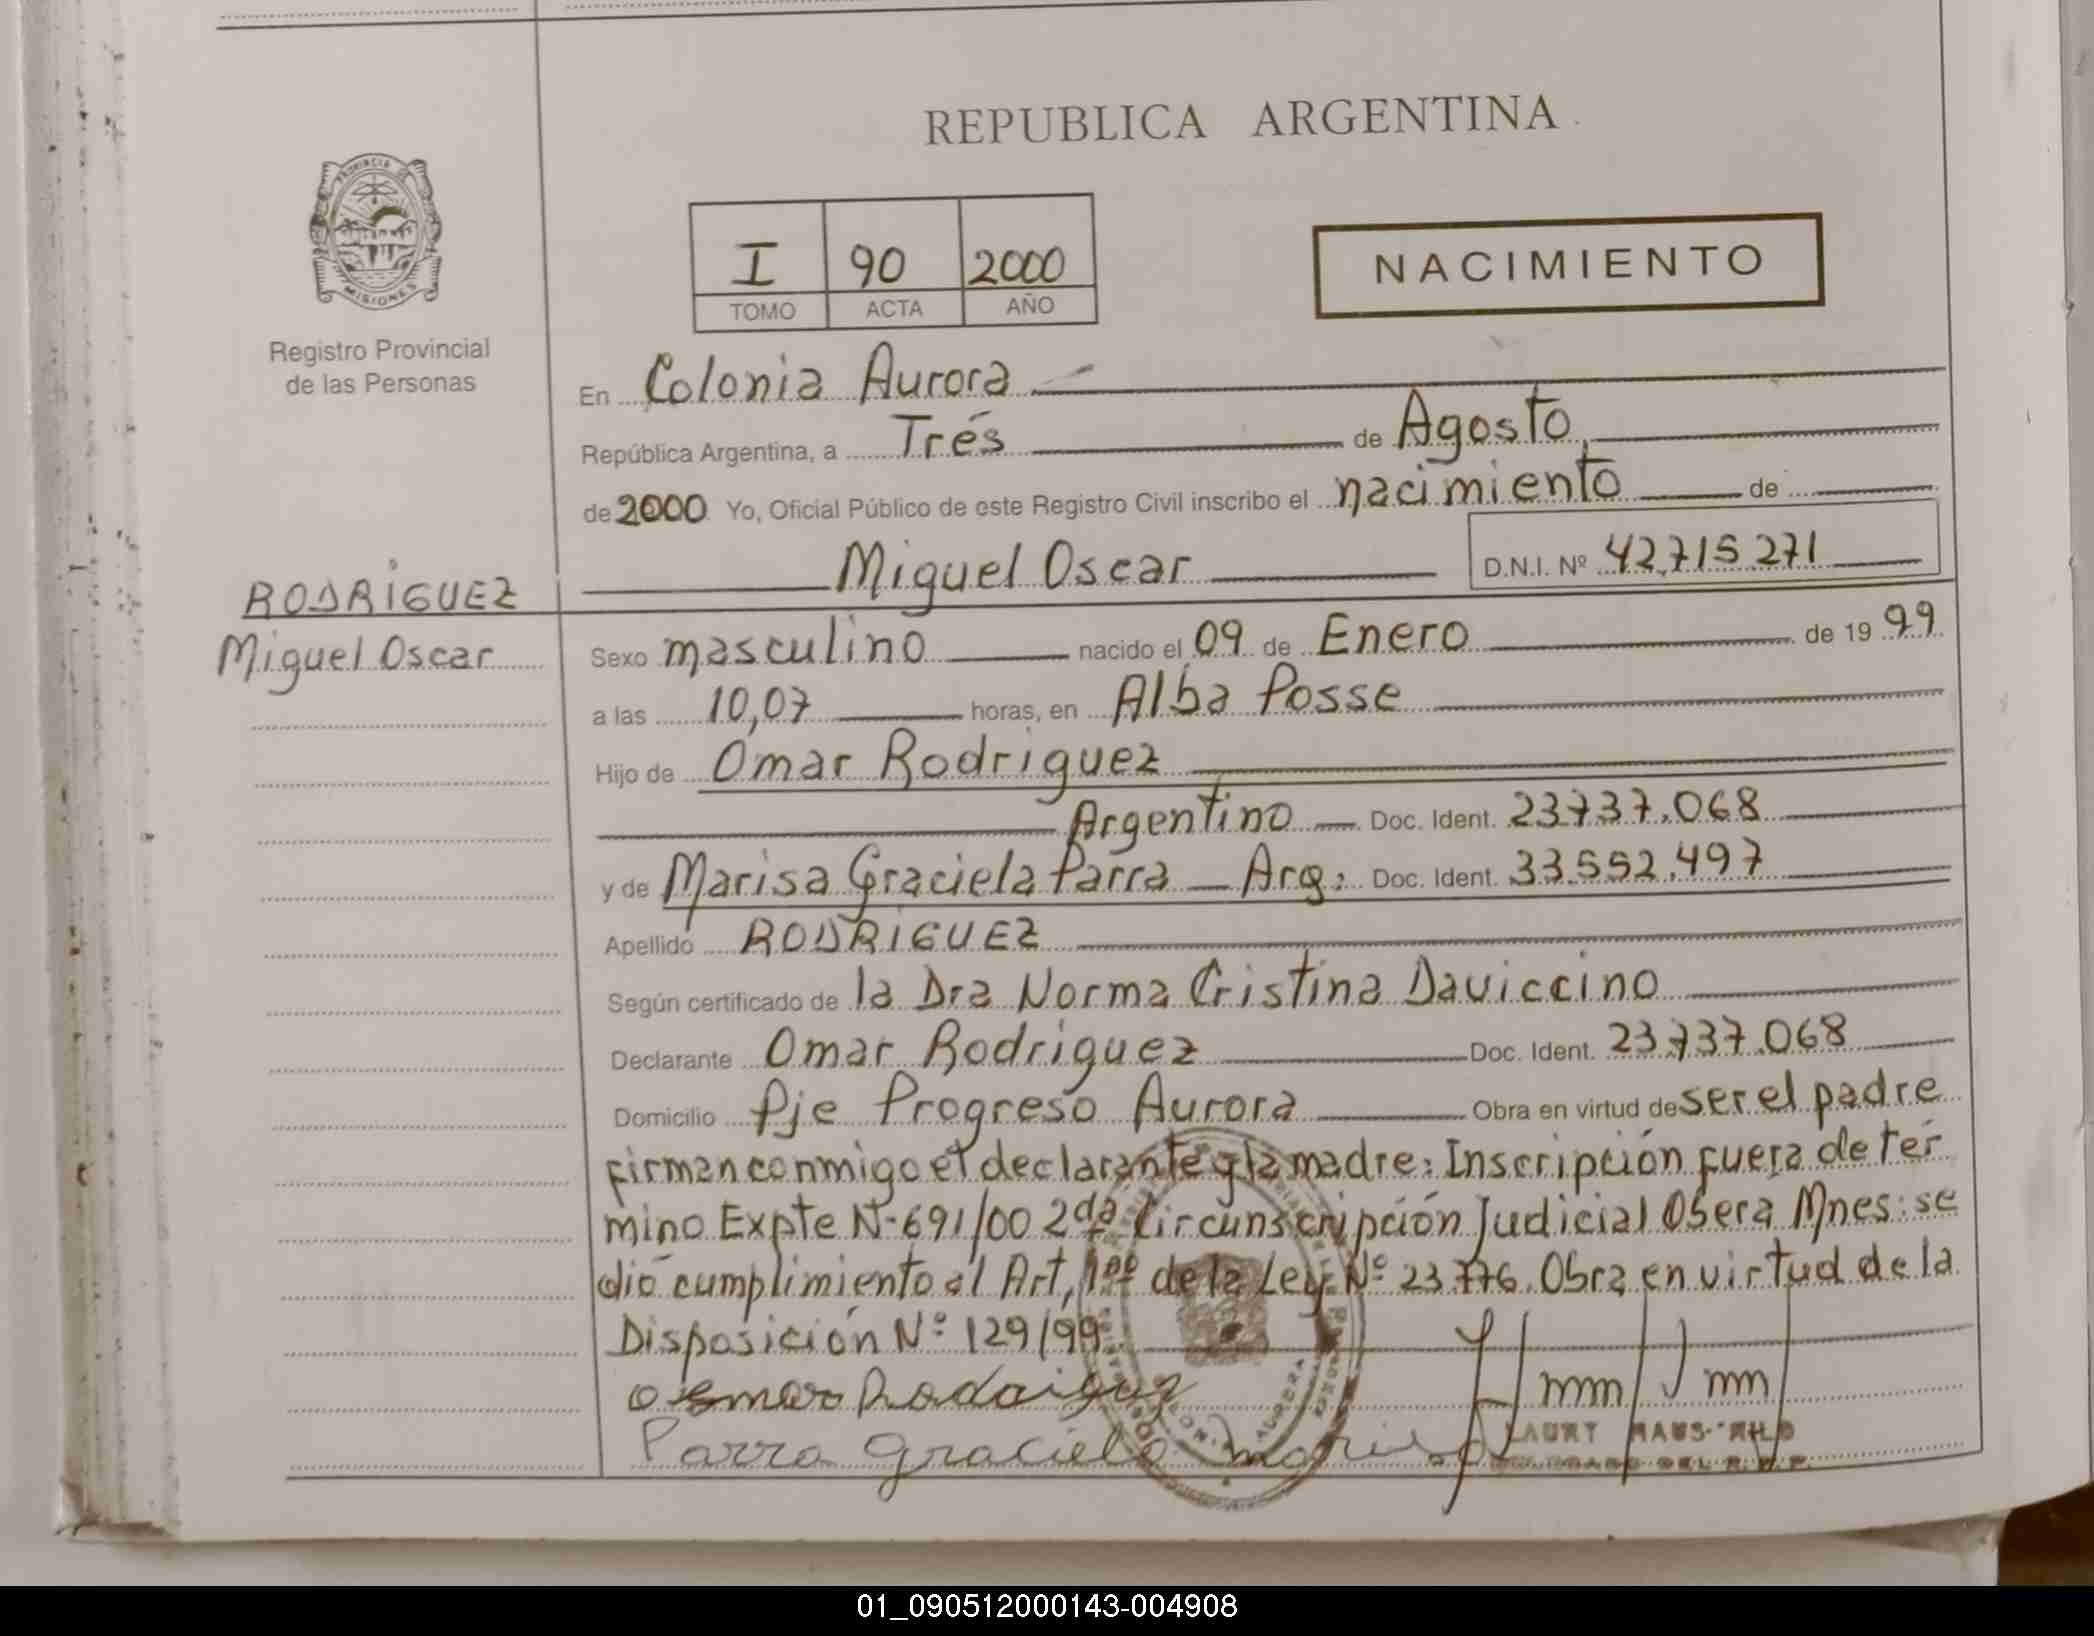 REPUBLICA ARGENTINA
PROVINCIA DE
MISIONES
Registro Provincial
de las Personas
I 90 2000
TOMO ACTA AÑO
NACIMIENTO
En Colonia Aurora
República Argentina, a Trés de Agosto,
de 2000 Yo, Oficial Público de este Registro Civil inscribo el nacimiento de
Miguel Oscar D.N.I. Nº 42,715.271
RODRIGUEZ
Miguel Oscar
Sexo masculino nacido el 09 de Enero de 1999
a las 10,07 horas, en Alba Posse
Hijo de Omar Rodriguez
Argentino Doc. Ident. 23737.068
y de Marisa Graciela Parra Arg. Doc. Ident. 33.552.497
Apellido RODRIGUEZ
Según certificado de la Dra Norma Cristina Daviccino
Declarante Omar Rodriguez Doc. Ident. 23.737.068
Domicilio Pje Progreso Aurora Obra en virtud de ser el padre
firman conmigo el declarante y la madre: Inscripción fuera de tér
mino Expte Nº 691/00 2da Circunscripción Judicial Obera Mnes: se
dió cumplimiento al Art, 1º de la Ley Nº 23.776. Obra en virtud de la
Disposición Nº 129/99
Parra Graciela Marisa
LAURY
DEL R. P. P.
AURORA
01_090512000143-004908